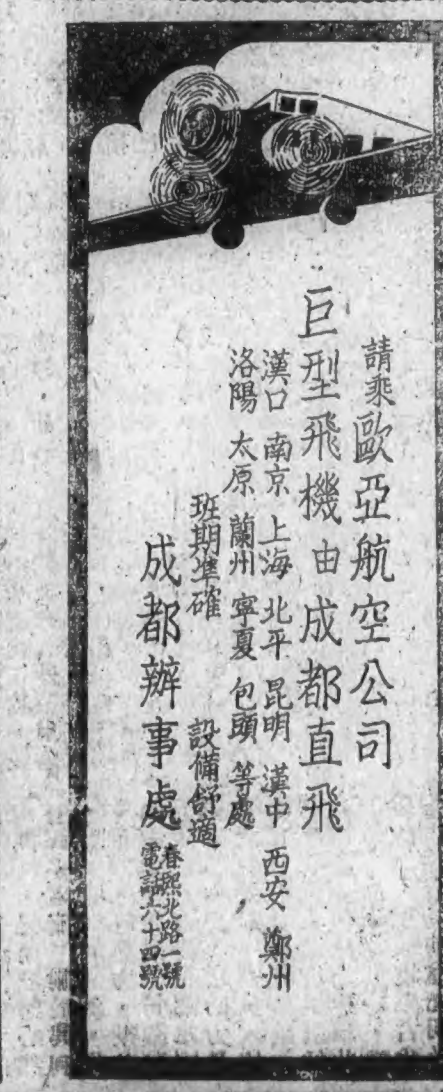 請乘歐亞航空公司
巨型飛機由成都直飛
漢口 南京 上海 北平 昆明 漢中 西安 鄭州
洛陽 太原 蘭州 寧夏 包頭 等處
班期準確 設備舒適
成都辦事處
春熙北路一號
電話六十四號